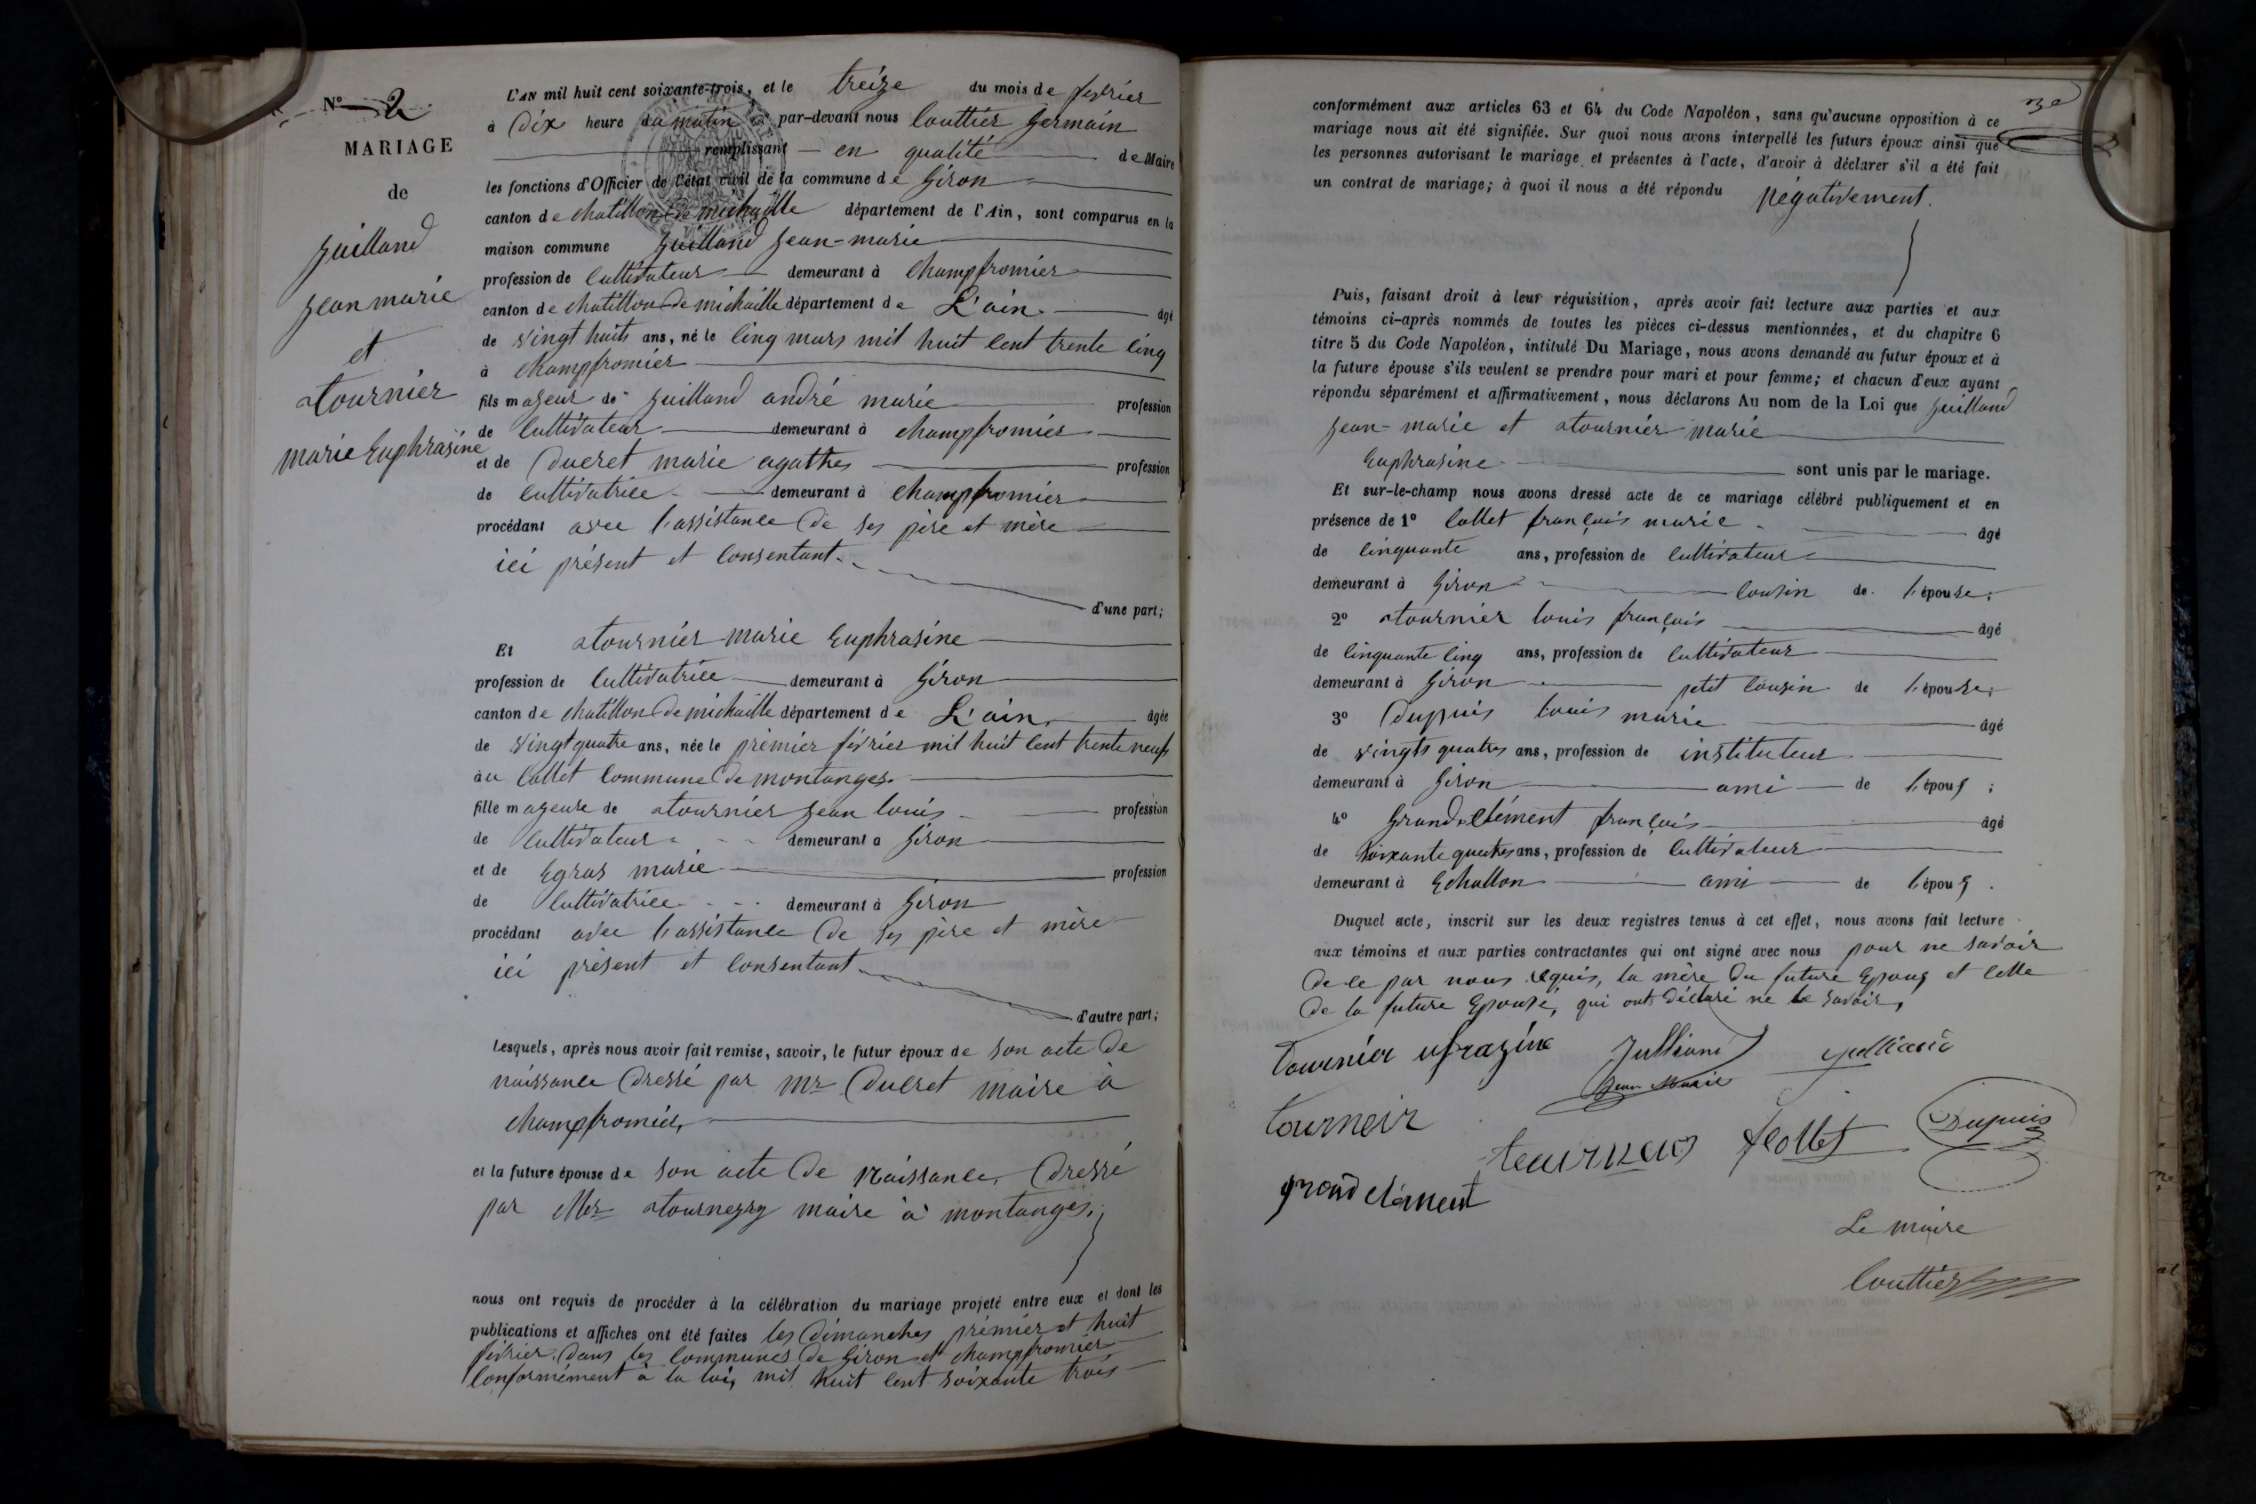 N° 2
MARIAGE
de
Juilland
Jean marie
et
tournier
marie Euphrasine
L'AN mil huit cent soixante-trois, et le treize du mois de février
à Dix heure du matin par-devant nous Couttier Germain
remplissant en qualité de Maire
les fonctions d'Officier de l'état civil de la commune de Giron
canton de chatillon de michaille département de l'Ain, sont comparus en la
maison commune Juilland Jean-marie
profession de Cultivateur demeurant à champfromier
canton de chatillon de michaille département de L'ain âgé
de vingt huits ans, né le Cinq mars mil huit Cent trente Cinq
à champfromier
fils majeur de Juilland andré marie profession
de Cultivateur demeurant à champfromier
et de Ducret marie agathes profession
de Cultivatrice demeurant à champfromier
procédant avec l'assistance de ses père et mère
ici présent et Consentant
d'une part;
Et tournier marie Euphrasine
profession de Cultivatrice demeurant à Giron
canton de chatillon de michaille département de L'ain âgée
de vingt quatre ans, née le prémier février mil huit Cent trente neufs
au Collet Commune de montanges
fille majeure de tournier Jean Louis profession
de Cultivateur demeurant a Giron
et de Egras marie profession
de Cultivatrice demeurant à Giron
procédant avec l'assistance de ses père et mère
ici présent et Consentant
d'autre part;
Lesquels, après nous avoir fait remise, savoir, le futur époux de son acte de
naissance Dressé par Mr Ducret maire à
champfromier,
et la future épouse de son acte de Naissance, Dressé
par Mr tournery maire à montanges,
nous ont requis de procéder à la célébration du mariage projeté entre eux et dont les
publications et affiches ont été faites les Dimanches prémier et huit
février dans les Communes de Giron et champfromier
Conformément à la loi, mil huit Cent soixante trois
conformément aux articles 63 et 64 du Code Napoléon, sans qu'aucune opposition à ce
mariage nous ait été signifiée. Sur quoi nous avons interpellé les futurs époux ainsi que
les personnes autorisant le mariage et présentes à l'acte, d'avoir à déclarer s'il a été fait
un contrat de mariage; à quoi il nous a été répondu négativement.
Puis, faisant droit à leur réquisition, après avoir fait lecture aux parties et aux
témoins ci-après nommés de toutes les pièces ci-dessus mentionnées, et du chapitre 6
titre 5 du Code Napoléon, intitulé Du Mariage, nous avons demandé au futur époux et à
la future épouse s'ils veulent se prendre pour mari et pour femme; et chacun d'eux ayant
répondu séparément et affirmativement, nous déclarons Au nom de la Loi que Juilland
Jean-marie et tournier marie
Euphrasine sont unis par le mariage.
Et sur-le-champ nous avons dressé acte de ce mariage célébré publiquement et en
présence de 1° Collet françois marie âgé
de Cinquante ans, profession de Cultivateur
demeurant à Giron Cousin de l'épouse;
2° tournier Louis françois âgé
de Cinquante Cinq ans, profession de Cultivateur
demeurant à Giron petit Cousin de l'épouse;
3° Dupuis Louis marie âgé
de vingts quatres ans, profession de instituteur
demeurant à Giron ami de l'époux;
4° Grand-Clément françois âgé
de Soixante quatres ans, profession de Cultivateur
demeurant à Echallon ami de l'époux.
Duquel acte, inscrit sur les deux registres tenus à cet effet, nous avons fait lecture
aux témoins et aux parties contractantes qui ont signé avec nous pour ne savoir
de ce par nous requis, la mère du future Epoux et Celle
De la future Epouse, qui ont Déclaré ne le savoir,
Tournier ufrazine Julliand
Jean Marie
tourneir
Collet Dupuis
grand clément
Le maire
Couttier